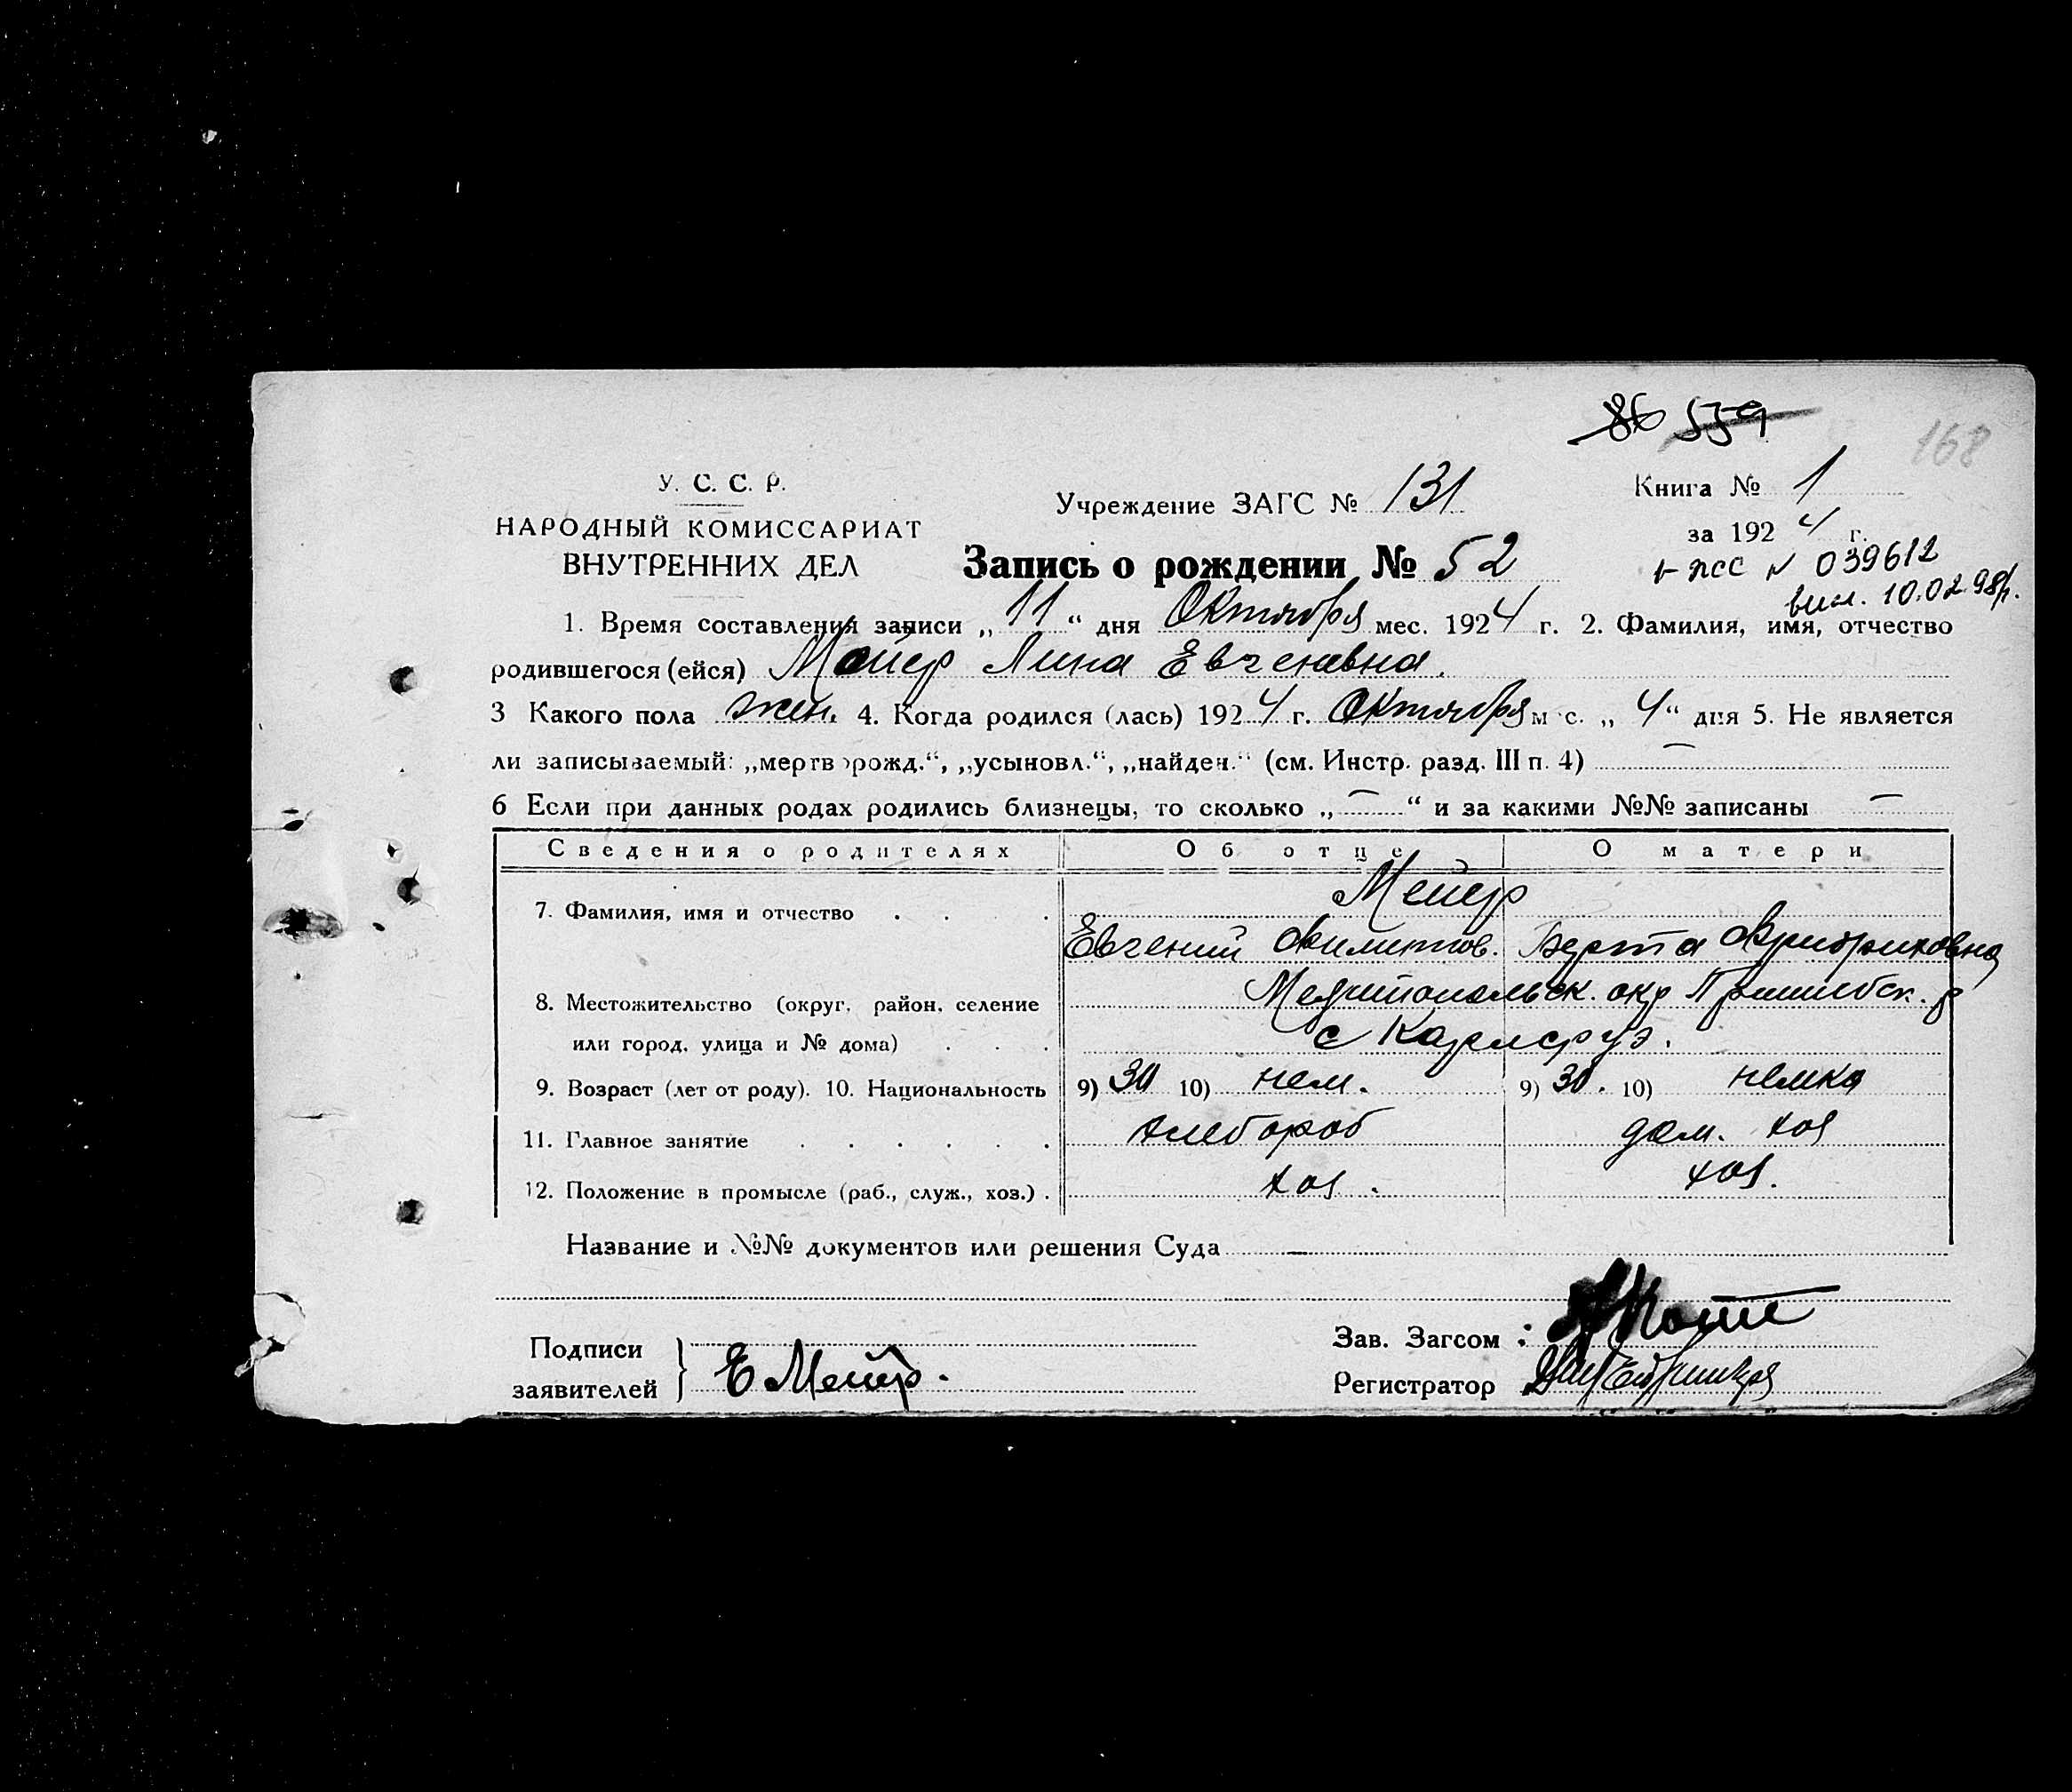 86 559
168
У. С. С. Р.
НАРОДНЫЙ КОМИССАРИАТ
ВНУТРЕННИХ ДЕЛ
Учреждение ЗАГС № 131
Книга № 1
за 1924 г.
Запись о рождении № 52
№ 039612
10.02.98р.
1. Время составления записи „11“ дня Октября мес. 1924 г. 2. Фамилия, имя, отчество
родившегося (ейся) Мейер Лина Евгеневна.
3 Какого пола жен. 4. Когда родился (лась) 1924 г. Октября м с. „4“ дня 5. Не является
ли записываемый: „мертворожд.“, „усыновл.“, „найден.“ (см. Инстр. разд. III п. 4) —
6 Если при данных родах родились близнецы, то сколько „—“ и за какими №№ записаны —
Сведения о родителях Об отце О матери
7. Фамилия, имя и отчество . . . Мейер
Евгений Филиппов. Берта Фридриховна
8. Местожительство (округ, район, селение Мелитопольск. окр Пришибск. р
или город, улица и № дома) . . . с Карлсруэ.
9. Возраст (лет от роду). 10. Национальность 9) 30 10) нем. 9) 30. 10) немка
11. Главное занятие . . . . . . хлебороб дом. хоз
12. Положение в промысле (раб., служ., хоз.) . хоз. хоз.
Название и №№ документов или решения Суда —
Подписи
заявителей } Е Мейер.
Зав. Загсом :
Регистратор